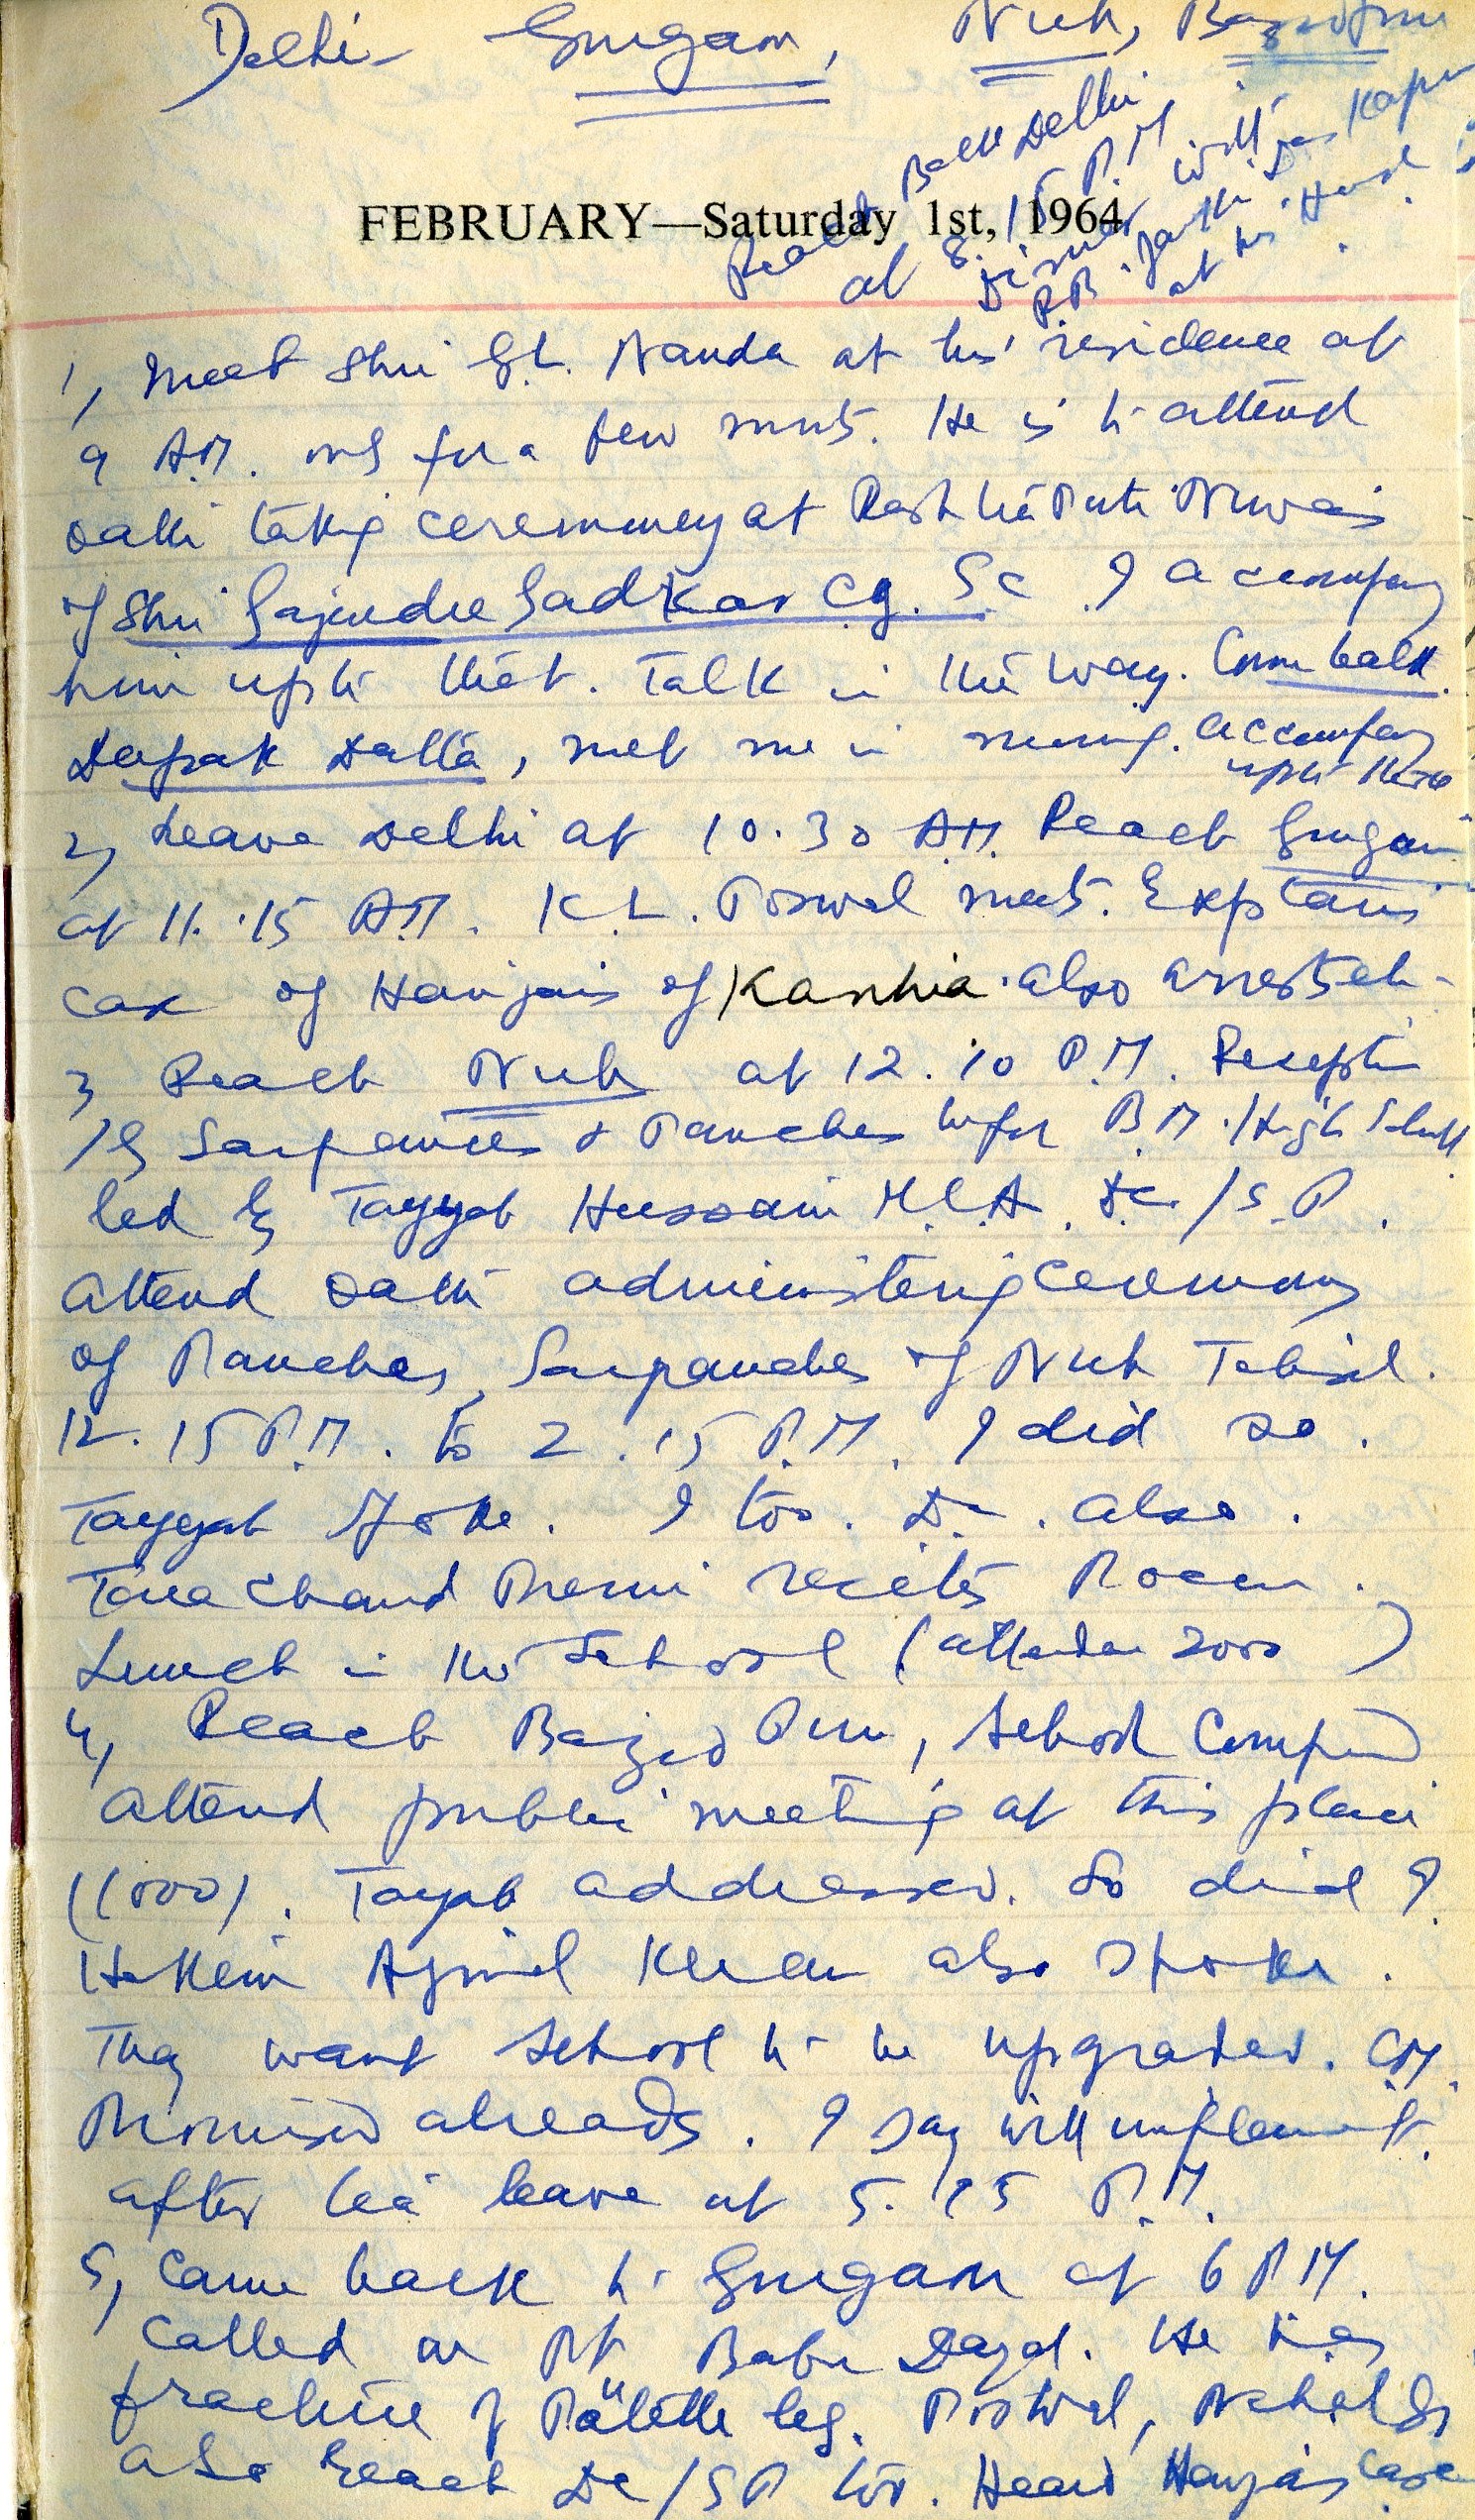 Delhi- Gurgaon, Nuh, Bazidpur
Reach Back Delhi
at 8.15 P.M
Dinner with
R.B. Kapur
at his House
FEBRUARY—Saturday 1st, 1964
1, Meet Shri G.L. Nanda at his residence at
9 A.M. only for a few mnts. He is to attend
oath taking ceremoney at Niwas
of Shri Gajendra Gadkar C.J. S.C I accompany
him upto that. Talk in the way. Come back.
Deepak Dalla, met me in morning. accompany
upto there
2, Leave Delhi at 10.30 A.M. Reach Gurgaon
at 11.15 A.M. K.L. Poswal meets. Explains
case of Harijans of Kanhia also arrests etc-
3 Reach Nuh at 12.10 P.M. Reception
by Sarpanches & Panches before B.M. High School
led by Tayyab Hussain M.L.A. D.C/S.P.
attend oath administering ceremony
of Panches, Sarpanches of Nuh Tehsil.
12.15 P.M. to 2.15 P.M. I did so.
Tayyab spoke. I too. D.C. also.
Tara Chand Premi recites Poem.
Lunch in the School (attendance 2000)
4, Reach Bazid Pur, School Compound
attend public meeting at this place
(1000). Tayab addressed. So did I.
Hakim Ajmal Khan also spoke.
They want School to be upgraded. CM.
Promised already. I say will implement it.
after tea leave at 5.15 P.M.
5, Came back to Gurgaon at 6 P.M.
Called on Pt. Babu Dayal. He has
fracture of leg. Poswal,
also reach DC/SP too. Heard Harijans Case